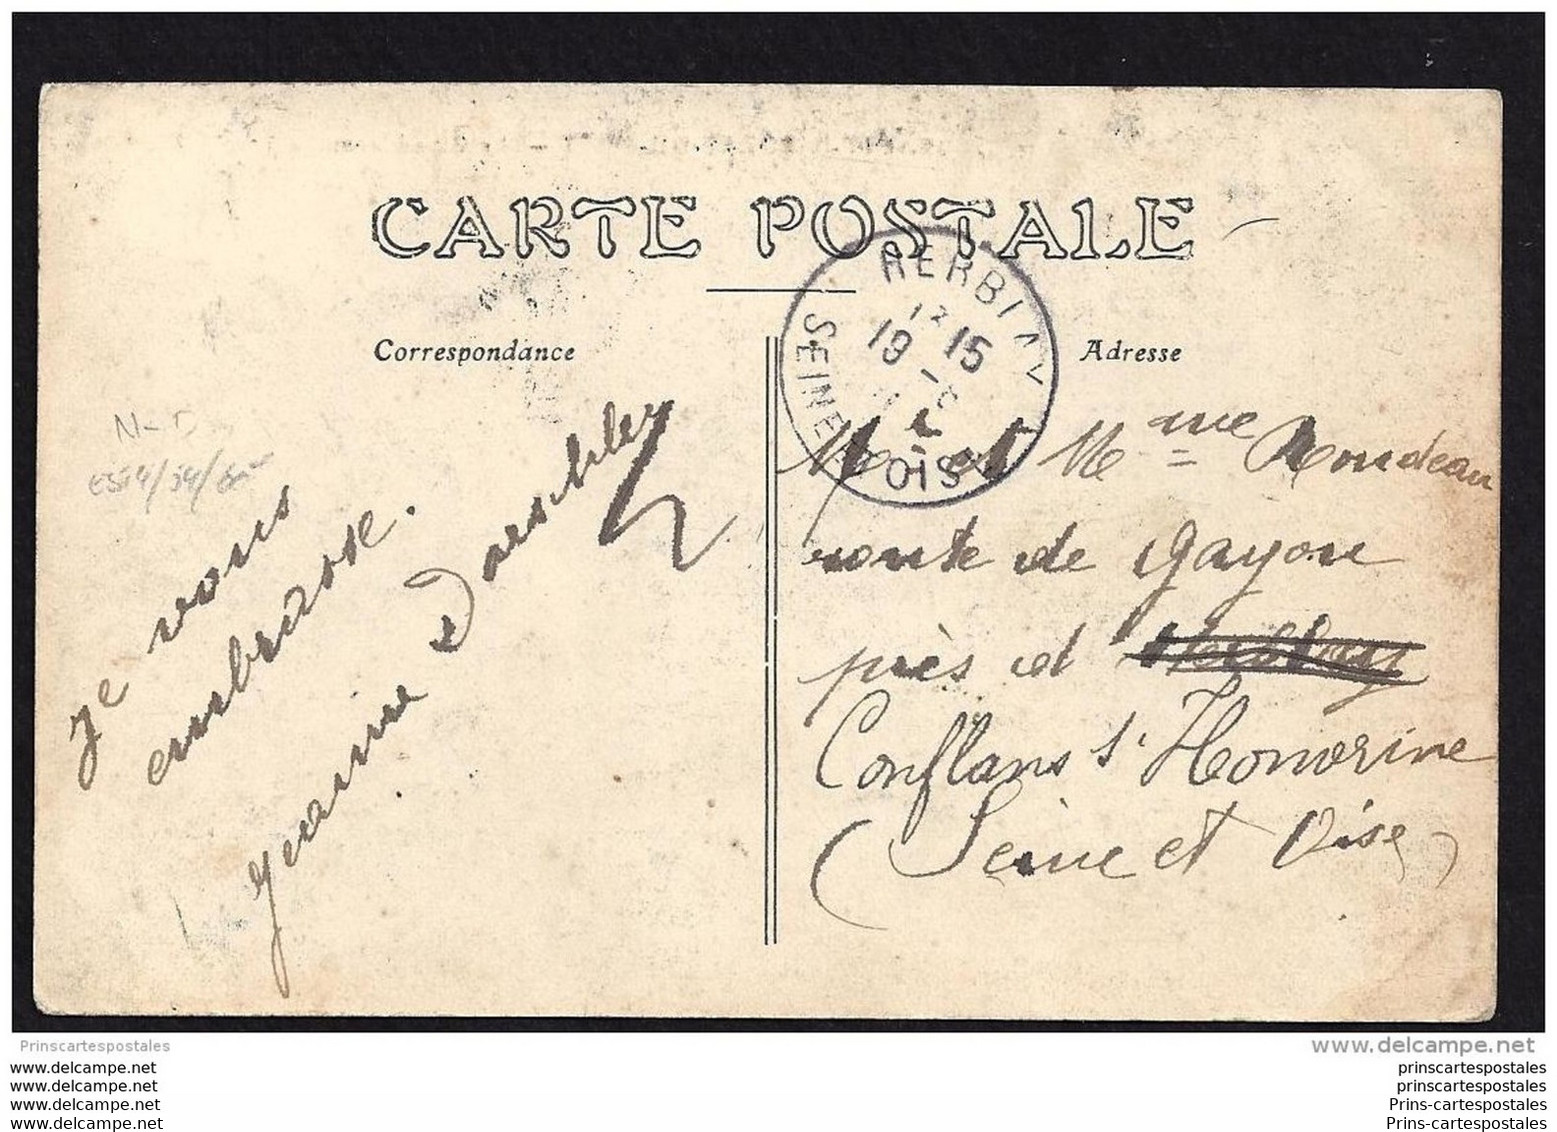 CARTE POSTALE
Correspondance
Adresse
HERBLAY
12 15
19 - 6
SEINE ET OISE
Je vous
embrasse.
Germaine
Mr et Mme Rondeau
route de
près et
Conflans St Honorine
(Seine et Oise)
Prinscartespostales
www.delcampe.net
www.delcampe.net
www.delcampe.net
www.delcampe.net
www.delcampe.net
prinscartespostales
prinscartespostales
Prins-cartespostales
Prins-cartespostales